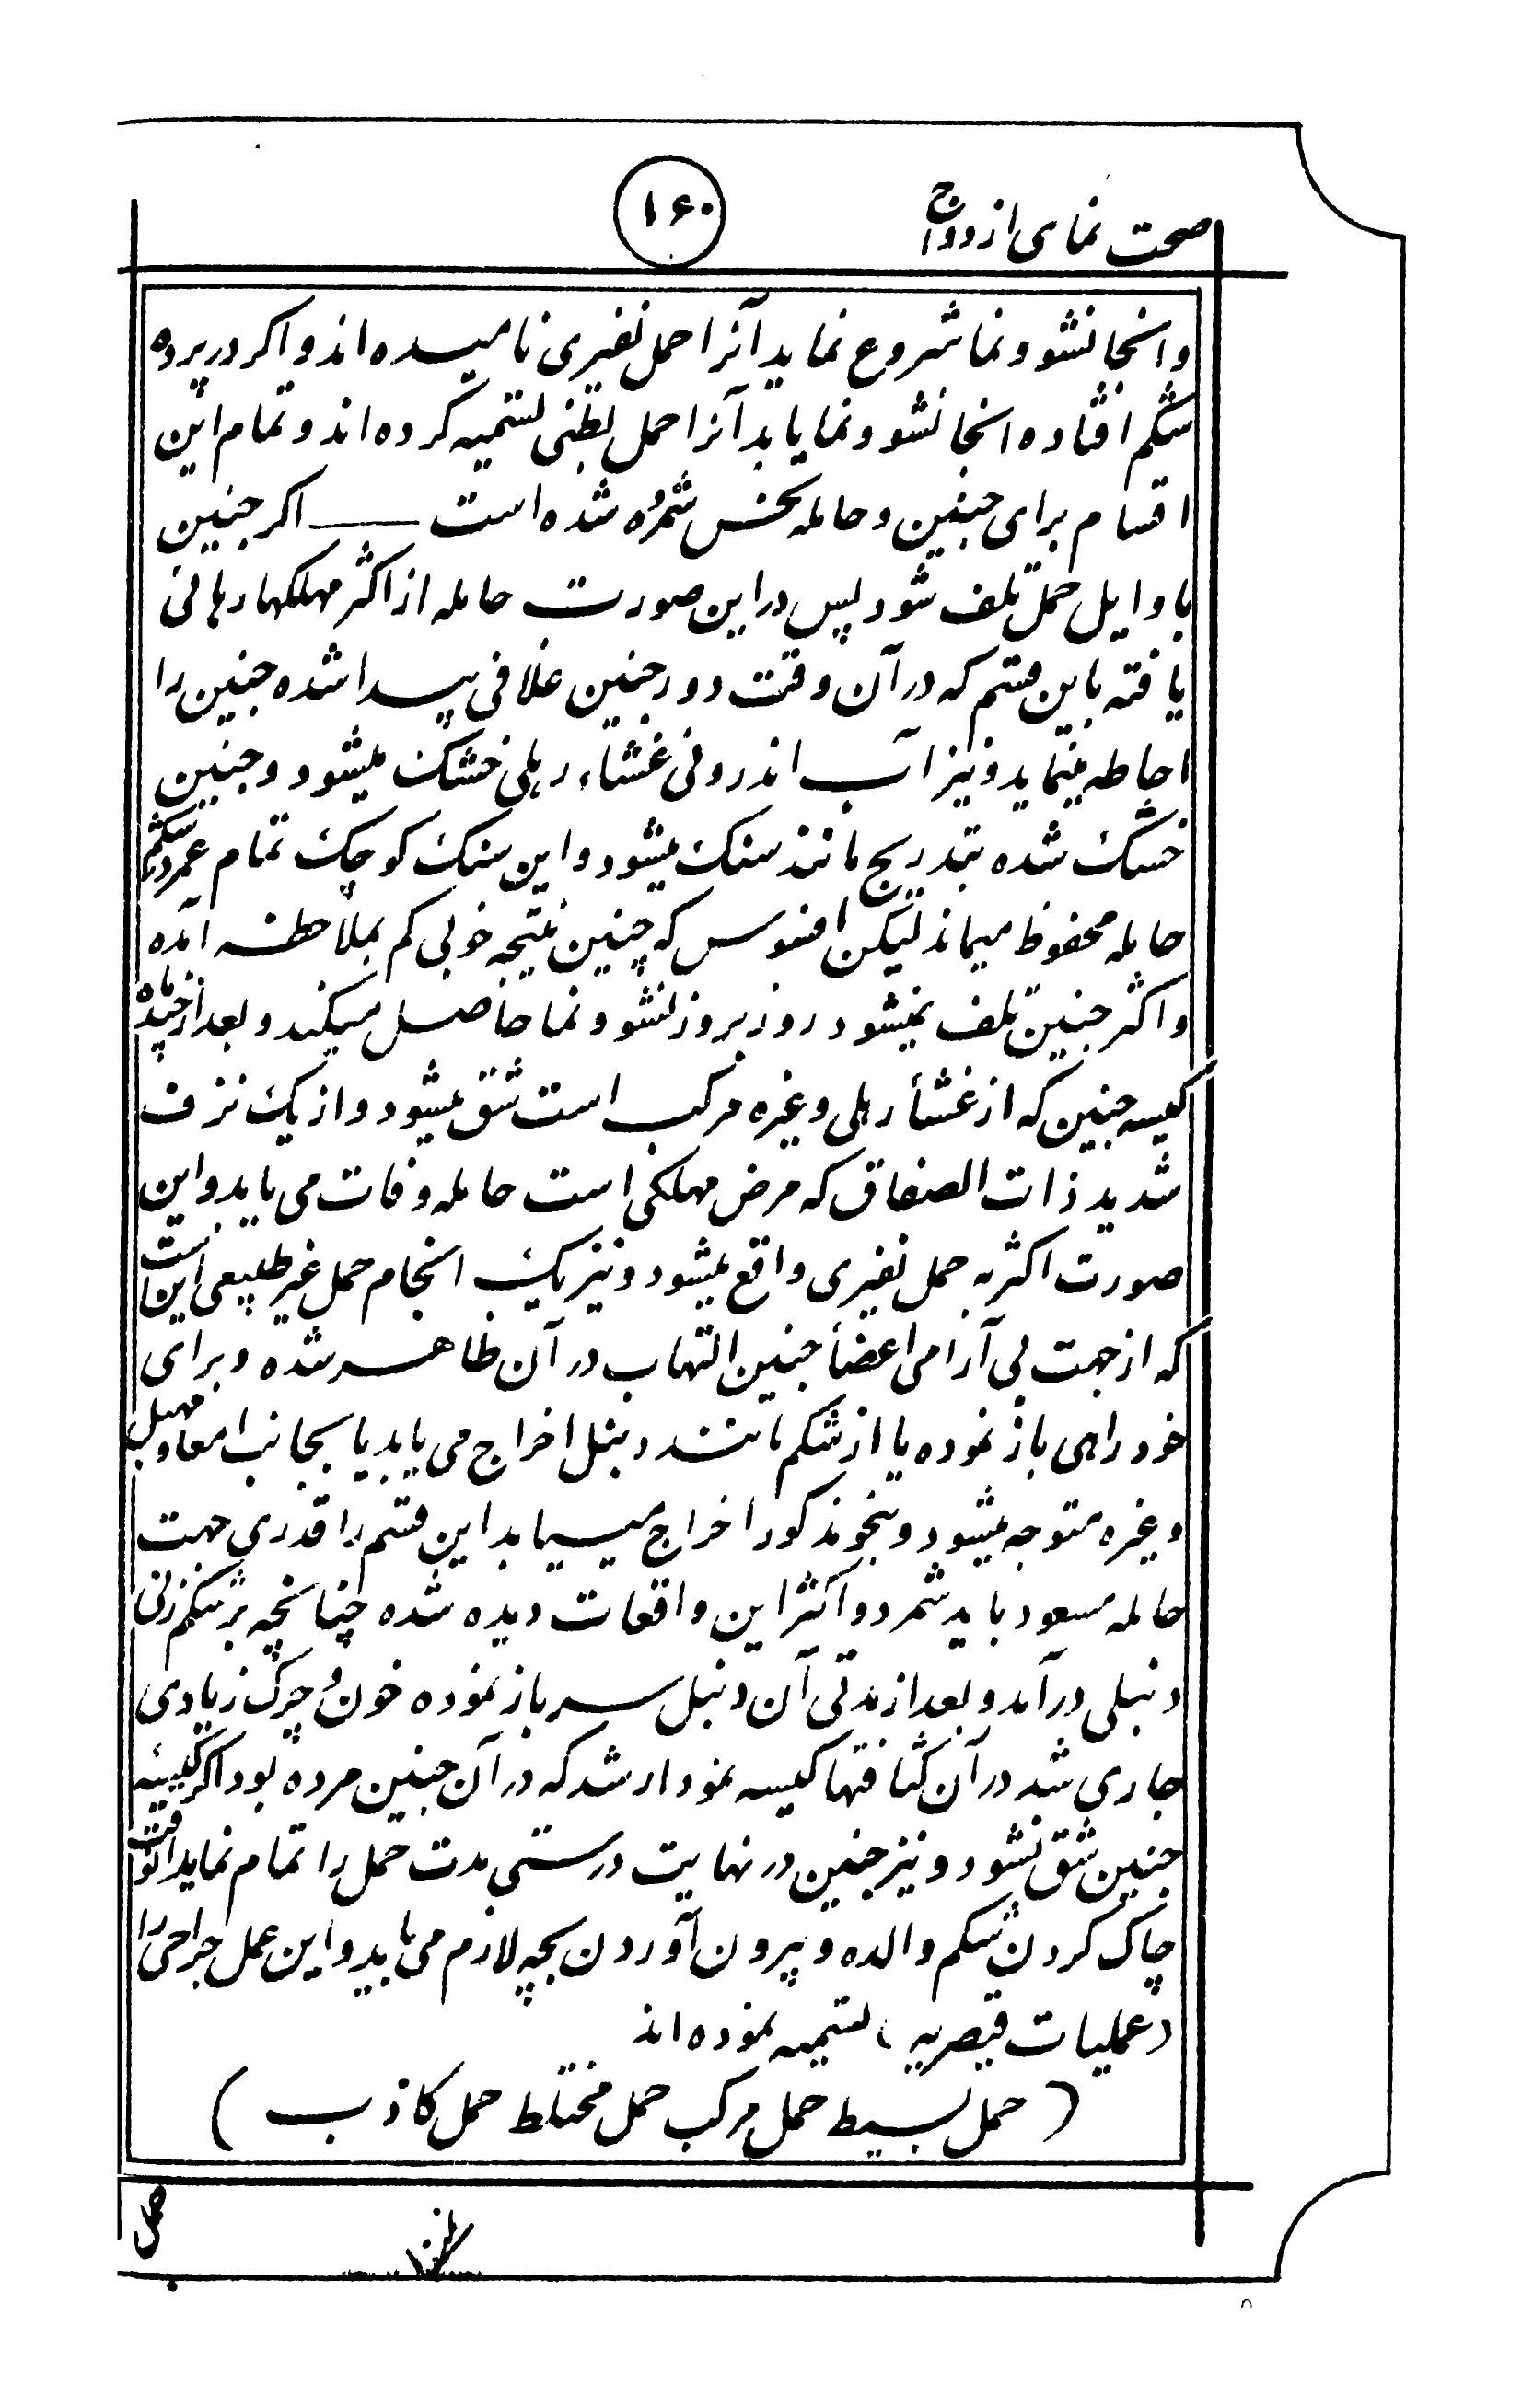 صحت نمای ازدواج
۱۶۰
وانجا نشو و نما شروع نماید آنرا حمل نفیری نامیده اند و اکر در پرده
شکم افتاده انجا نشو و نما یابد آنرا حمل بطنی تسمیه کرده اند و تمام این
اقسام برای جنین و حامله نحس شمرده شده است ــــ اکر جنین
باوایل حمل تلف شود پس در این صورت حامله از اکثر مهلکها رهائی
یافته باین قسم که در آن وقت دور جنین غلافی پیدا شده جنین را
احاطه مینماید و نیز آب اندرونی غشاء رهلی خشک میشود و جنین
خشک شده بتدریج مانند سنک میشود و این سنک کوچک تمام عمر در شکم
حامله محفوظ میماند لیکن افسوس که چنین نتیجه خوبی کم بملاحظه آمده
و اکثر جنین تلف نمیشود روز بروز نشو و نما حاصل میکند و بعد از چند ماه
کیسه جنین که از غشأ رهلی و غیره مرکب است شق میشود و از یک نزف
شدید ذات الصفاق که مرض مهلکی است حامله وفات می یابد و این
صورت اکثر به حمل نفیری واقع میشود و نیز یک انجام حمل غیر طبیعی این است
که از جهت بی آرامی اعضأ جنین التهاب در آن ظاهر شده و برای
خود راهی باز نموده یا از شکم مانند دنبل اخراج می یابد یا بجانب امعا و مهبل
و غیره متوجه میشود و بنحو مذکور اخراج مییابد این قسم را قدری جهت
حامله مسعود باید شمرد و اکثر این واقعات دیده شده چنانچه بر شکم زنی
دنبلی در آمد و بعد از مدتی آن دنبل سر باز نموده خون و چرک زیادی
جاری شد در آن کثافتها کیسه نمودار شد که در آن جنین مرده بود اکر کیسه
جنین شق نشود و نیز جنین در نهایت درستی مدت حمل را تمام نماید انوقت
چاک کردن شکم والده و بیرون آوردن بچه لازم می یابد و این عمل جراحی را
(عملیات قیصریه) تسمیه نموده اند
(حمل بسیط حمل مرکب حمل مختلط حمل کاذب)
حمل